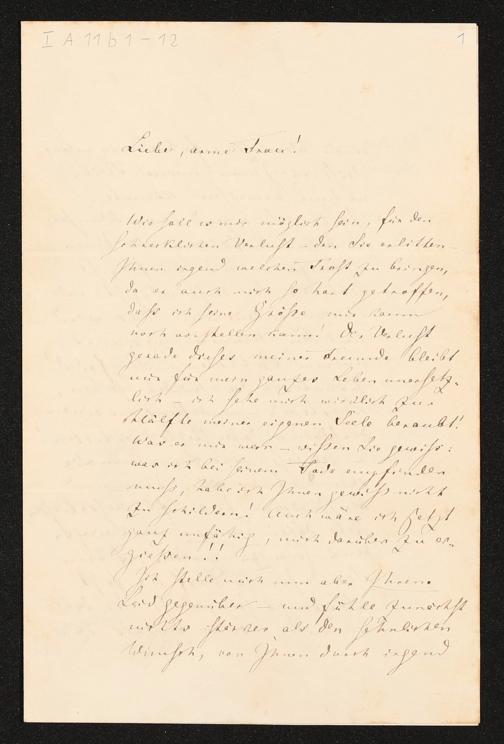 I A 11 b 1 - 12
1
Liebe, arme Frau!
Wie soll es mir möglich sein, für den
schrecklichen Verlust – den Sie erlitten –
Ihnen irgend welchen Trost zu bringen,
da er auch mich so hart getroffen,
dass ich seine Größe mir kaum
noch vorstellen kann! Der Verlust
gerade dieses meiner Freunde bleibt
mir für mein ganzes Leben unersetz-
lich – ich sehe mich wirklich zur
Hälfte meiner eigenen Seele beraubt!
Was er mir war – wissen Sie gewiss:
was ich bei seinem Tode empfinden
muss, habe ich Ihnen gewiss nicht
zu schildern! Auch wäre ich jetzt
ganz unfähig, mich darüber zu er-
giessen!!
Ich stelle mich nun aber Ihrem
Leid gegenüber – und fühle zunächst
nichts stärker als den sehnlichen
Wunsch, von Ihnen durch irgend